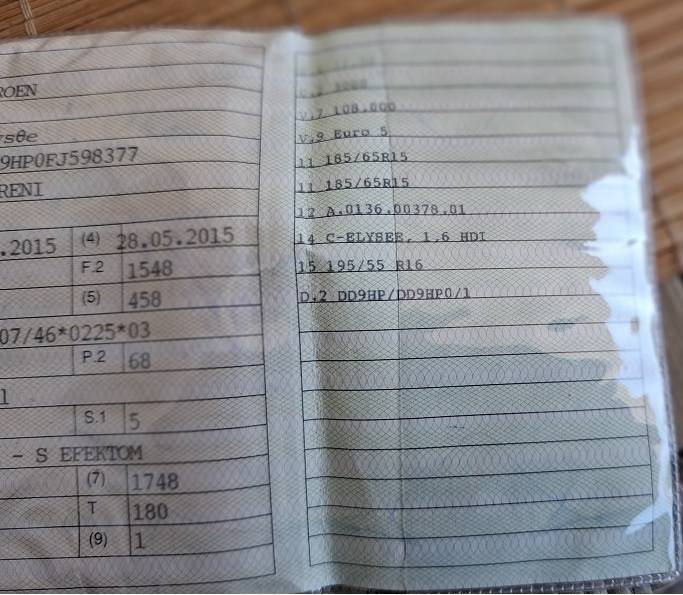 ROEN
ysée
9HP0FJ598377
RENI
.2015 (4) 28.05.2015
F.2 1548
(5) 458
07/46*0225*03
P.2 68
l
S.1 5
- S EFEKTOM
(7) 1748
T 180
(9) 1
V.7 108.000
V.9 Euro 5
11 185/65R15
11 185/65R15
12 A.0136.00378.01
14 C-ELYSEE, 1.6 HDI
15 195/55 R16
D.2 DD9HP/DD9HP0/1